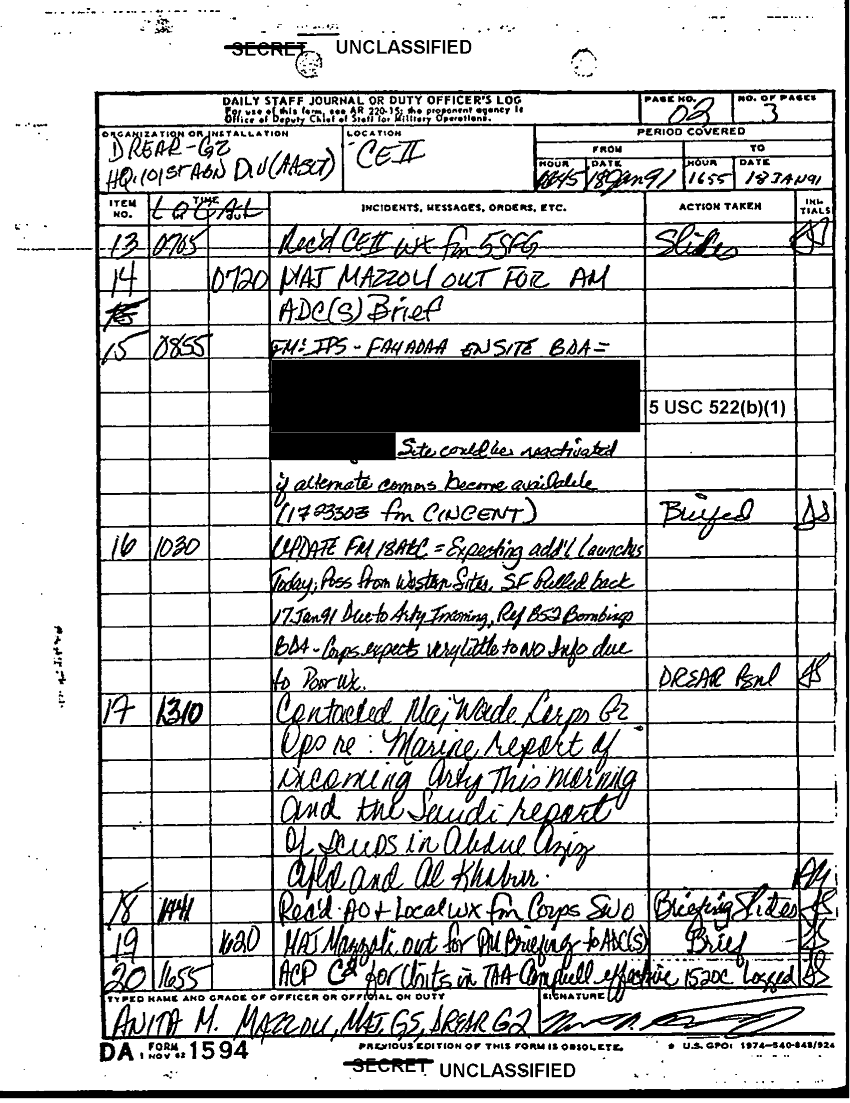 SECRET UNCLASSIFIED
DAILY STAFF JOURNAL OR DUTY OFFICER'S LOG
For use of this form, see AR 220-15; the proponent agency is
Office of Deputy Chief of Staff for Military Operations.
PAGE NO.
02
NO. OF PAGES
3
ORGANIZATION OR INSTALLATION
DREAR-G2
HQ, 101ST ABN DIV (AASLT)
LOCATION
CE II
PERIOD COVERED
FROM
TO
HOUR
DATE
18 Jan 91
HOUR
1655
DATE
18 JAN 91
ITEM NO.
TIME
LOCAL
INCIDENTS, MESSAGES, ORDERS, ETC.
ACTION TAKEN
INI-TIALS
13 0705 Rec'd CE II wx fm 5SFG Slides
14 0720 MAJ MAZZOLI OUT FOR AM
ADC(S) Brief
15 0855 FM: IPS - ENSITE BDA =
5 USC 522(b)(1)
Site could be reactivated
if alternate comms become available
(172330Z fm CINCENT) Briefed
16 1030 UPDATE FM 18ABC = Expecting add'l Launches
Today; Poss from Western Sites, SF Pulled back
17 Jan 91 Due to Arty Incoming, Ref B52 Bombings
BDA - Corps expects very little to NO Info due
to Poor Wx. DREAR Psnl
17 1310 Contacted Maj Wade Corps G2
Ops re: Marine report of
incoming Arty This morning
and the Saudi report
of scuds in Abdue Aziz
afld and Al Khabur.
18 1441 Rec'd AO + Local wx fm Corps SWO Briefing Slides
19 1620 MAJ Mazzoli out for PM Briefing to ADC(S) Brief
20 1655 ACP C2 for Units in TAA Campbell effective 1520C Logged
TYPED NAME AND GRADE OF OFFICER OR OFFICIAL ON DUTY
ANITA M. MAZZOLI, MAJ, GS, DREAR G2
SIGNATURE
DA FORM 1 NOV 62 1594
PREVIOUS EDITION OF THIS FORM IS OBSOLETE.
U.S. GPO: 1974-540-848/924
SECRET UNCLASSIFIED